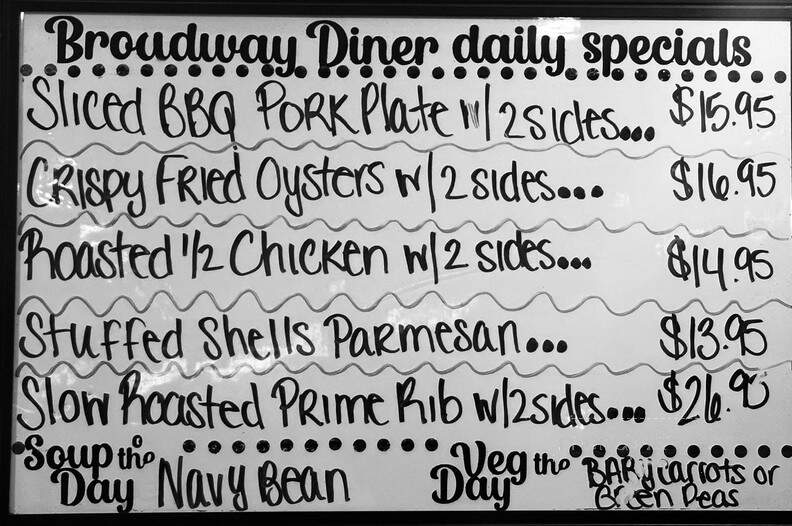 Broadway Diner daily specials
Sliced BBQ Pork Plate w/ 2 sides... $15.95
Crispy Fried Oysters w/ 2 sides... $16.95
Roasted 1/2 Chicken w/ 2 sides... $14.95
Stuffed Shells Parmesan... $13.95
Slow Roasted Prime Rib w/ 2 sides... $26.90
Soup o the Day Navy Bean
Veg the Day BABY carrots or
Green Peas